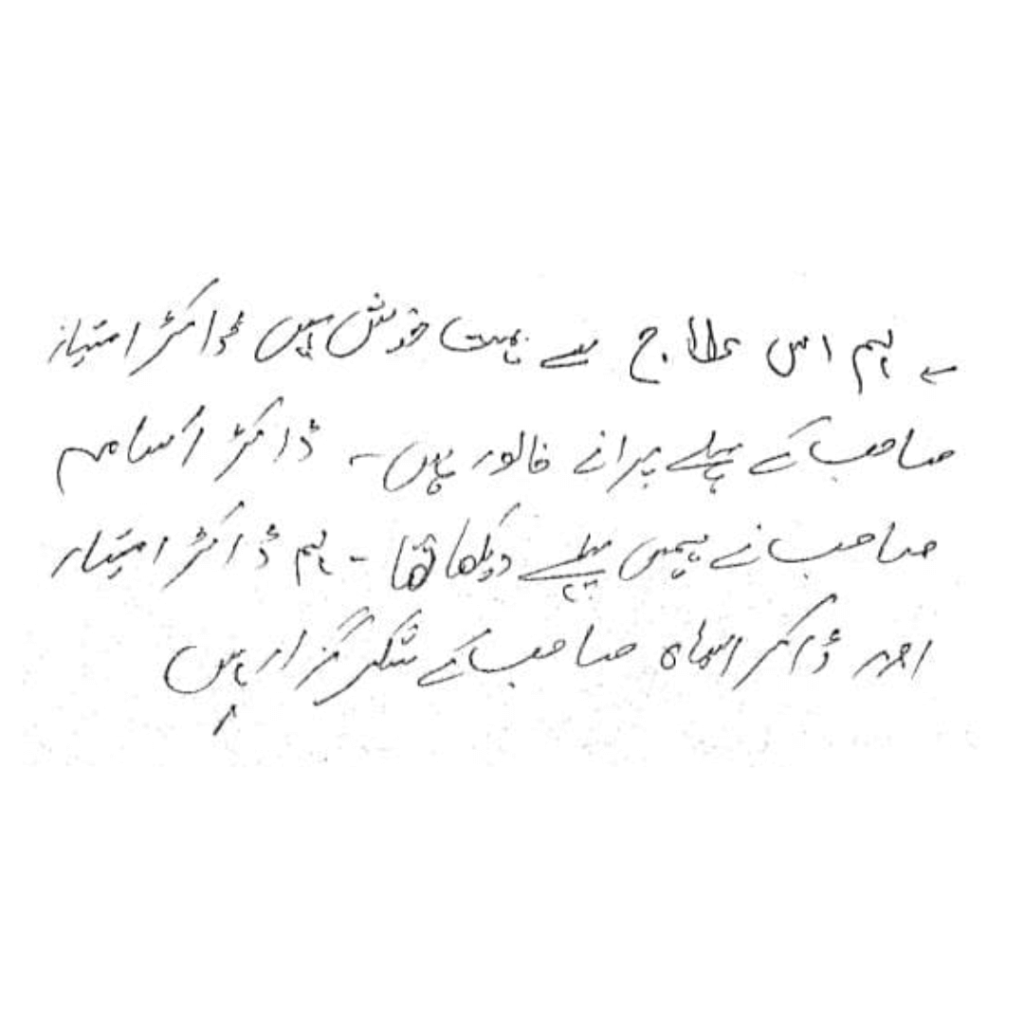 ← ہم اس علاج سے بہت خوش ہیں ڈاکٹر امتیاز
صاحب کے پہلے پرانے فالور ہیں - ڈاکٹر اسامہ
صاحب نے ہمیں پہلے دیکھا تھا - ہم ڈاکٹر امتیاز
اور ڈاکٹر اسامہ صاحب کے شکر گزار ہیں